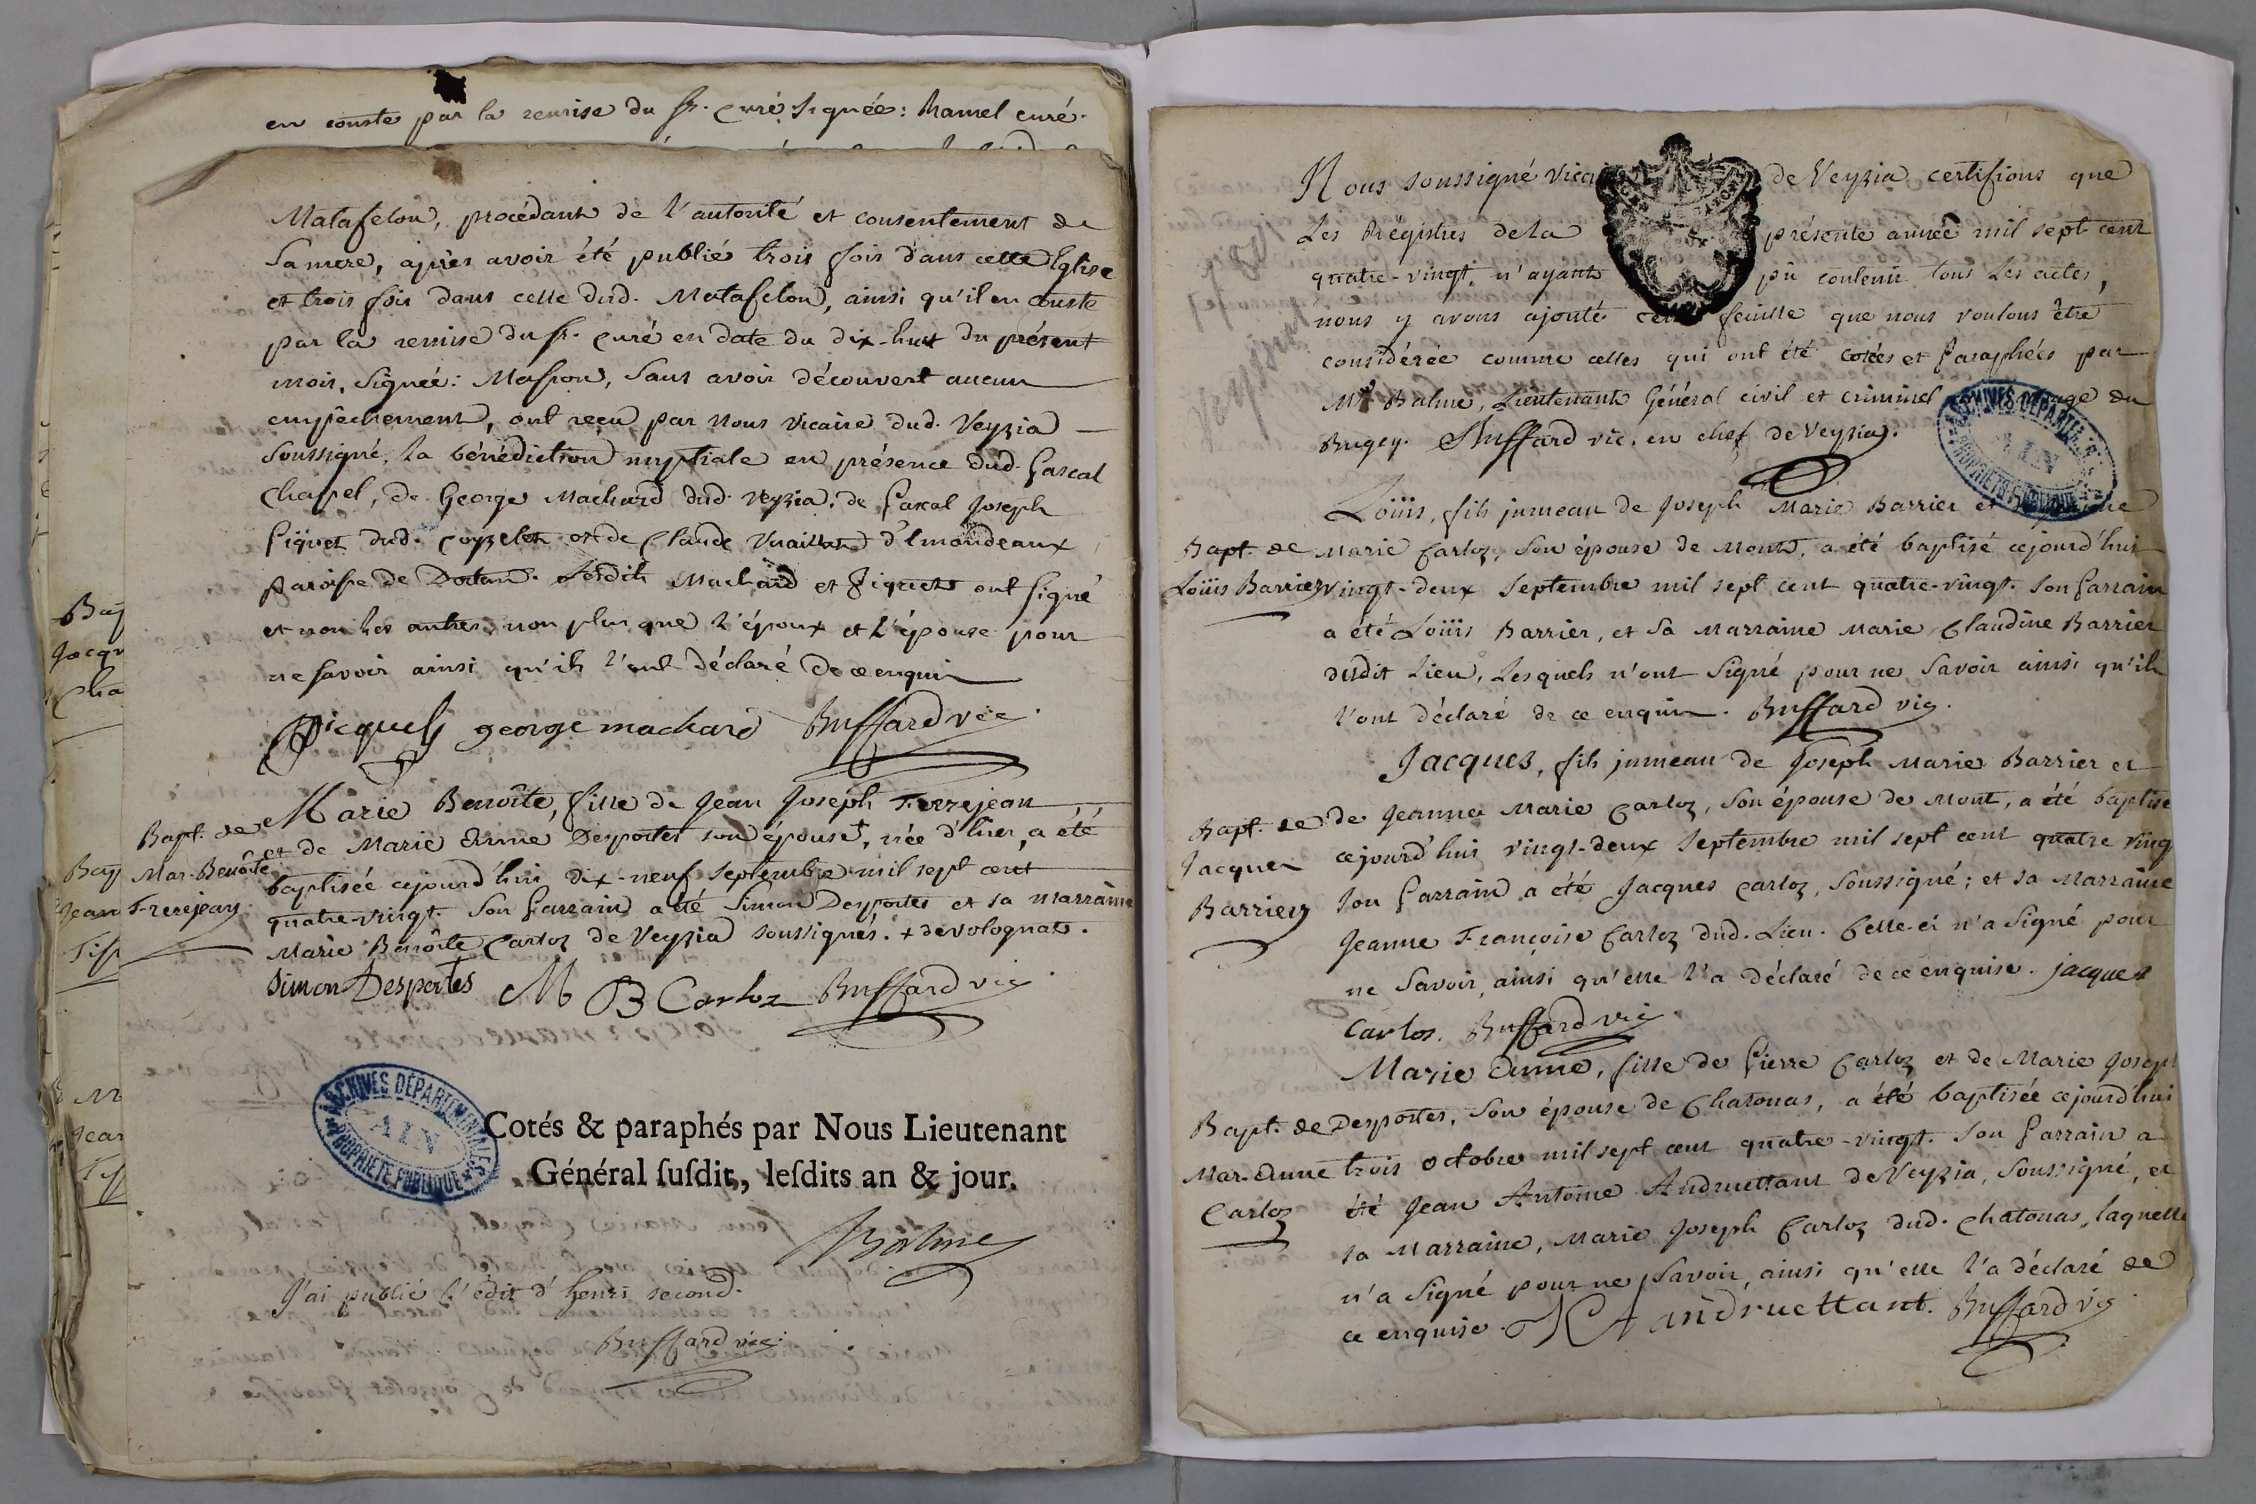 en conste par la remise du sr. curé signée: hamel curé.
Matafelon, procédant de l'autorité et consentement de
Sa mere, après avoir été publié trois fois dans cette Eglise
et trois fois dans celle dud. Matafelon, ainsi qu'il en conste
par la remise du sr. curé en date du dix-huit du présent
mois, signée: Masson, sans avoir découvert aucun
empêchement, ont reçu par nous vicaire dud. Veyzia
soussigné, la bénédiction nuptiale en présence dud. Pascal
Chapel, de George Machard dud. Veyzia, de Pascal Joseph
Piquet dud. Coyzelet et de Claude Vuaillat d'Emondeaux
paroisse de Dortan. Lesdits Machard et Piquet ont signé
et non les autres, non plus que l'époux et l'épouse pour
ne savoir ainsi qu'ils l'ont déclaré de ce enquis
Picquet george machard Buffard vic.
Bapt. de
Mar. Benoîte
Frerejean
Marie Benoîte, fille de Jean Joseph Frerejean
et de Marie Anne Desportes son épouse +, née d'hier, a été
baptisée cejourd'hui dix-neuf septembre mil sept cent
quatre-vingt. Son Parrain a été Simon Desportes et sa marraine
Marie Benoîte Carloz de Veyzia soussignés. + de volognat.
Simon Desportes M B Carloz Buffard vic
ARCHIVES DÉPARTEMENTALES
AIN
PROPRIÉTÉ PUBLIQUE
Cotés & paraphés par Nous Lieutenant
Général ſuſdit, leſdits an & jour.
Balme
J'ai publié l'édit d'henri second.
Buffard vic.
Bap
Jacqu
Cha
Bap
Jean
Tiss
Nous soussigné vicaire de Veyzia certifions que
Les Regîstres de la présente année mil sept cent
quatre-vingt, n'ayant pû contenir tous les actes,
nous y avons ajouté cette feuille que nous voulons être
considérée comme celles qui ont été cotées et paraphées par
Mr. Balme, Lieutenant Général civil et criminel
au Bailliage du
Bugey. Buffard vic. en chef de Veyzia.
ARCHIVES DÉPARTEMENTALES
AIN
PROPRIÉTÉ PUBLIQUE
Bapt. de
Loüis Barrier
Loüis, fils jumeau de Joseph Marie Barrier et de Jeanne
Marie Carloz, son épouse de Mont, a été baptisé cejourd'hui
vingt-deux septembre mil sept cent quatre-vingt. Son Parrain
a été Loüis Barrier, et sa Marraine Marie Claudine Barrier
dudit Lieu, Lesquels n'ont signé pour ne savoir ainsi qu'ils
l'ont déclaré de ce enquis. Buffard vic.
Bapt. de
Jacques
Barrier
Jacques, fils jumeau de Joseph Marie Barrier et
de Jeanne Marie Carloz, son épouse de Mont, a été baptisé
cejourd'hui vingt-deux septembre mil sept cent quatre ving
son Parrain a été Jacques Carloz, soussigné; et sa Marraine
Jeanne Françoise Carloz dud. Lieu. Celle-ci n'a signé pour
ne savoir, ainsi qu'elle l'a déclaré de ce enquise. jacques
Carlos. Buffard vic
Bapt. de
Mar. Anne
Carloz
Marie Anne, fille de Pierre Carloz et de Marie Joseph
Desportes, son épouse de Chatonas, a été baptisée cejourd'hui
trois octobre mil sept cent quatre-vingt. Son Parrain a
été Jean Antoine Andruettant de Veyzia, soussigné, et
sa Marraine, Marie Joseph Carloz dud. Chatonas, laquelle
n'a signé pour ne savoir, ainsi qu'elle l'a déclaré de
ce enquise. J A andruettant. Buffard vic